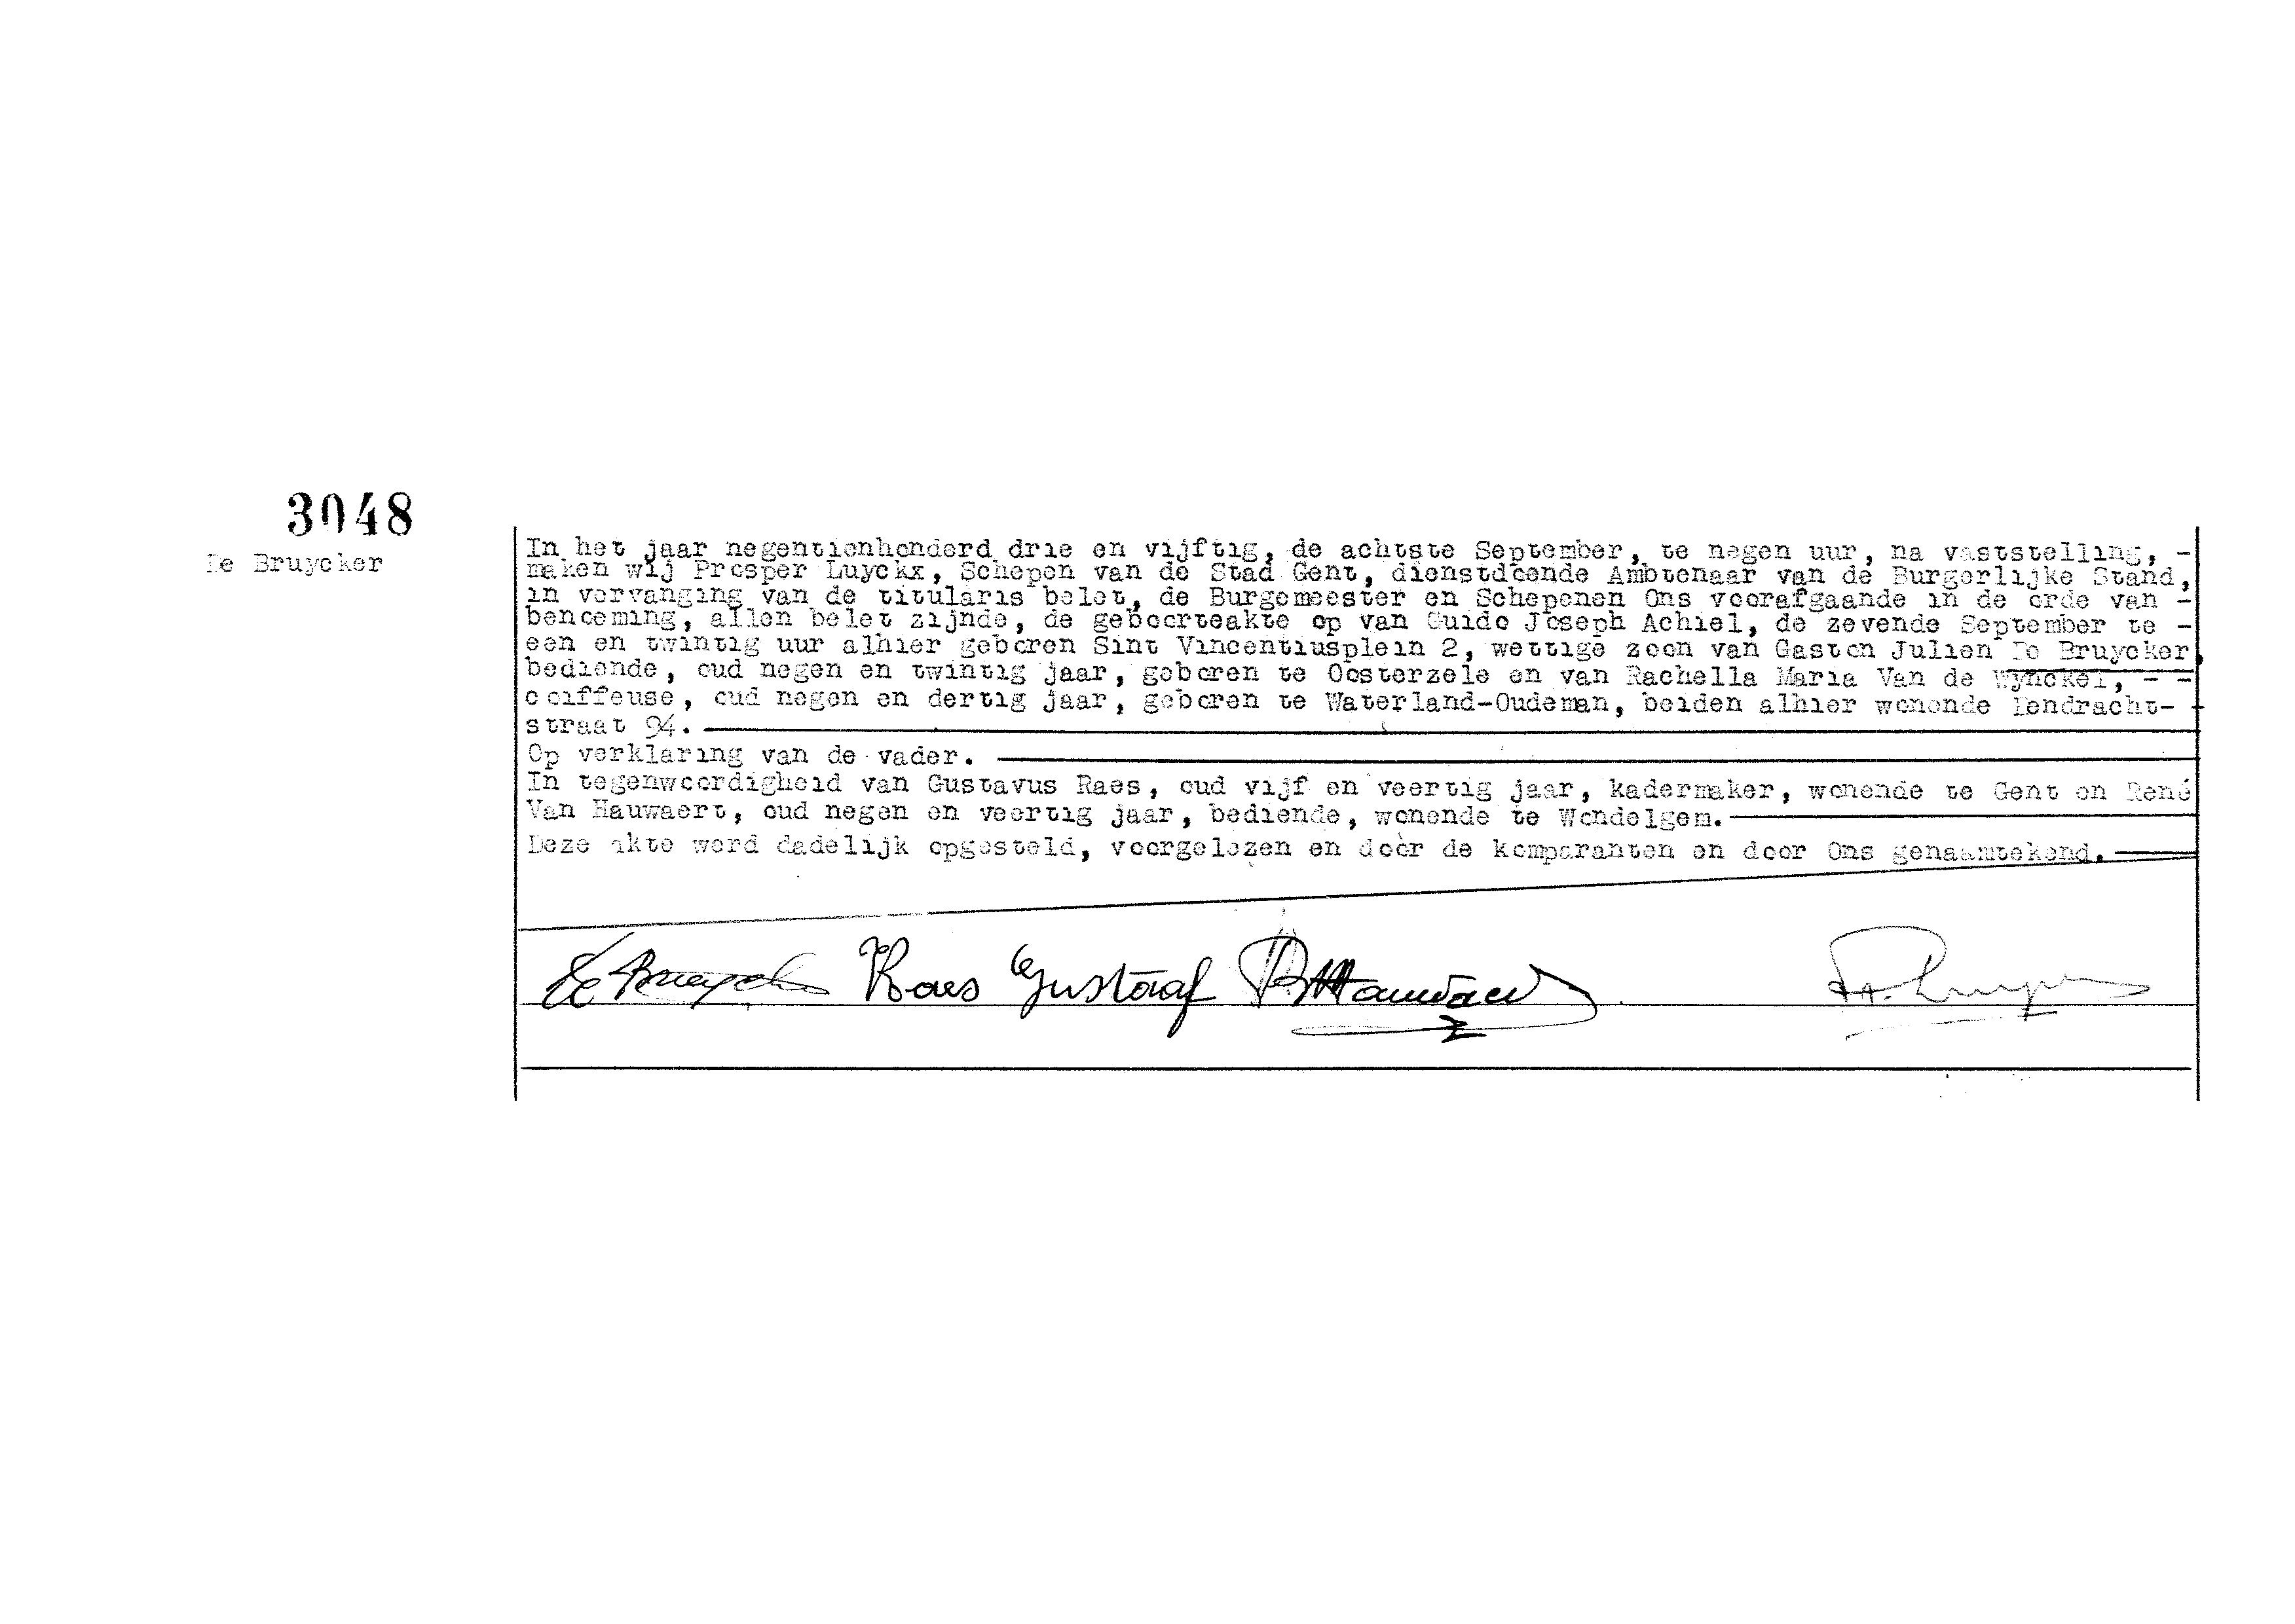 3048
De Bruycker
In het jaar negentienhonderd drie en vijftig, de achtste September, te negen uur, na vaststelling, -
maken wij Prosper Luyckx, Schepen van de Stad Gent, dienstdoende Ambtenaar van de Burgerlijke Stand,
in vervanging van de titularis belet, de Burgemeester en Schepenen Ons voorafgaande in de orde van -
benoeming, allen belet zijnde, de geboorteakte op van Guido Joseph Achiel, de zevende September te -
een en twintig uur alhier geboren Sint Vincentiusplein 2, wettige zoon van Gaston Julien De Bruycker,
bediende, oud negen en twintig jaar, geboren te Oosterzele en van Rachella Maria Van de Wynckel, - -
coiffeuse, oud negen en dertig jaar, geboren te Waterland-Oudeman, beiden alhier wonende Eendracht-
straat 94.
Op verklaring van de vader.
In tegenwoordigheid van Gustavus Raes, oud vijf en veertig jaar, kadermaker, wonende te Gent en René
Van Hauwaert, oud negen en veertig jaar, bediende, wonende te Wondelgem.
Deze akte werd dadelijk opgesteld, voorgelezen en door de komparanten en door Ons genaamtekend.
De Bruycker Raes Gustaaf